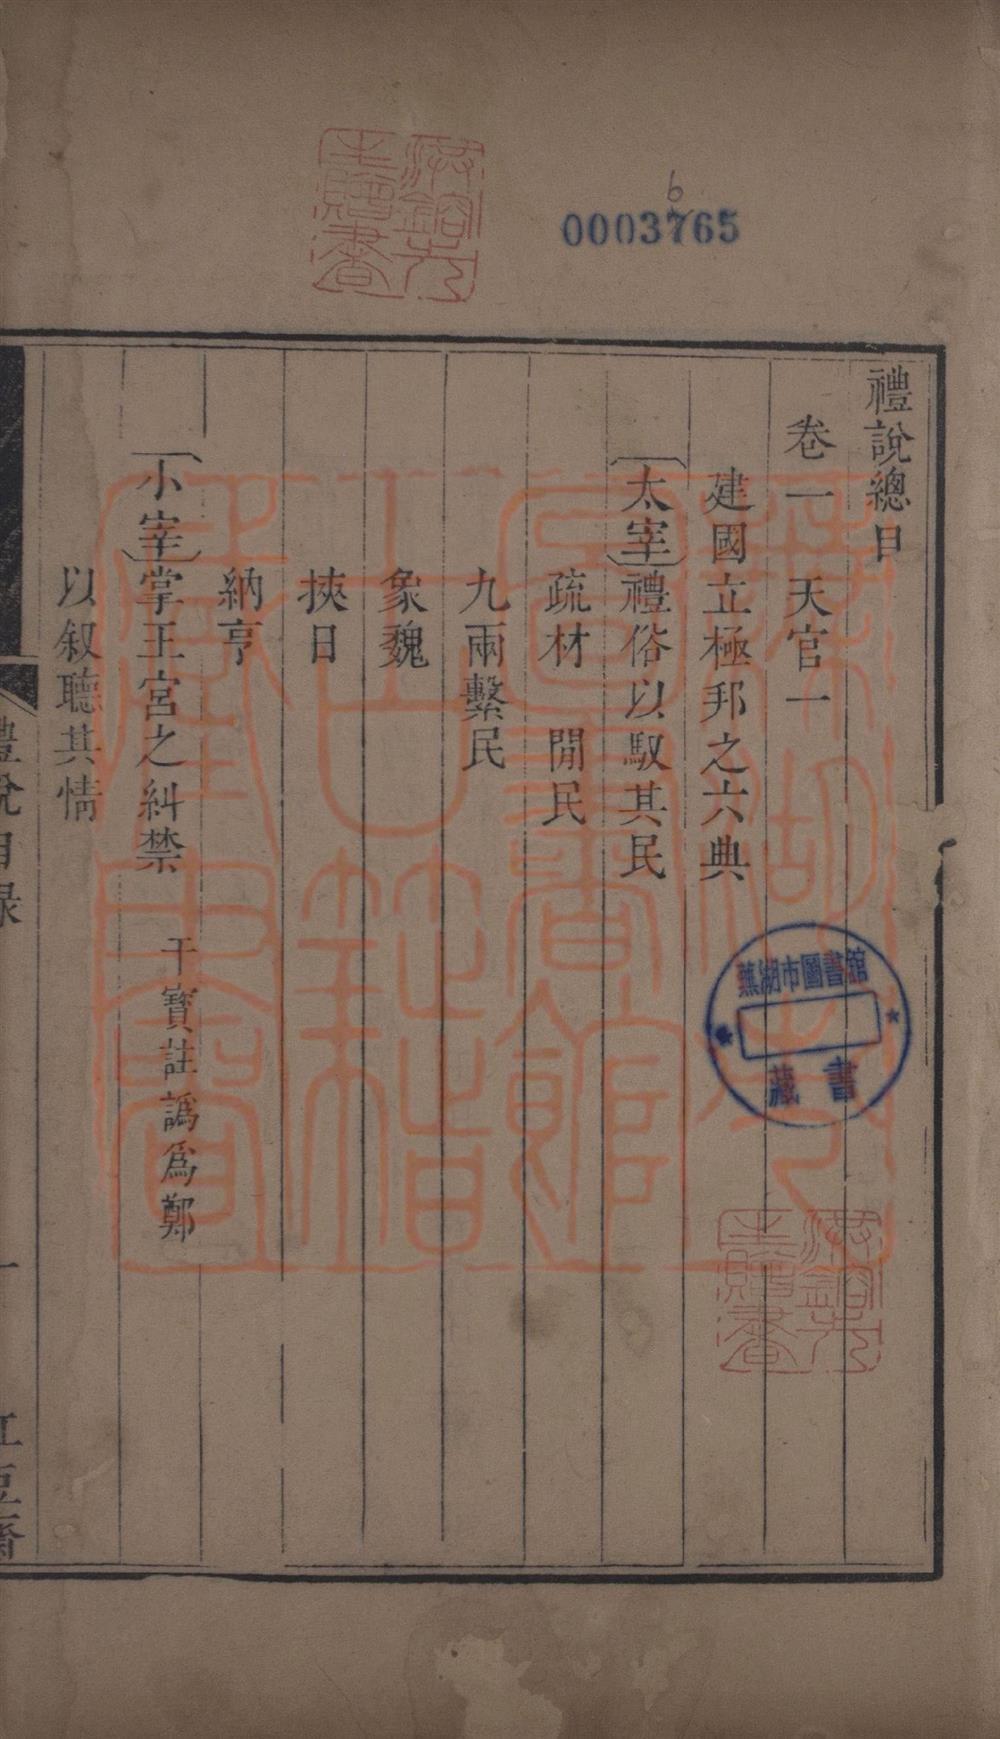 禮說總目
卷一　天官一
建國立極邦之六典
〔太宰〕禮俗以馭其民
疏材　閒民
九兩繫民
象魏
挾日
納亨
〔小宰〕掌王宮之糾禁　干寶註譌爲鄭
以叙聽其情
禮說目錄　一　紅豆齋
0003765
6
蕪湖市圖書館
藏書